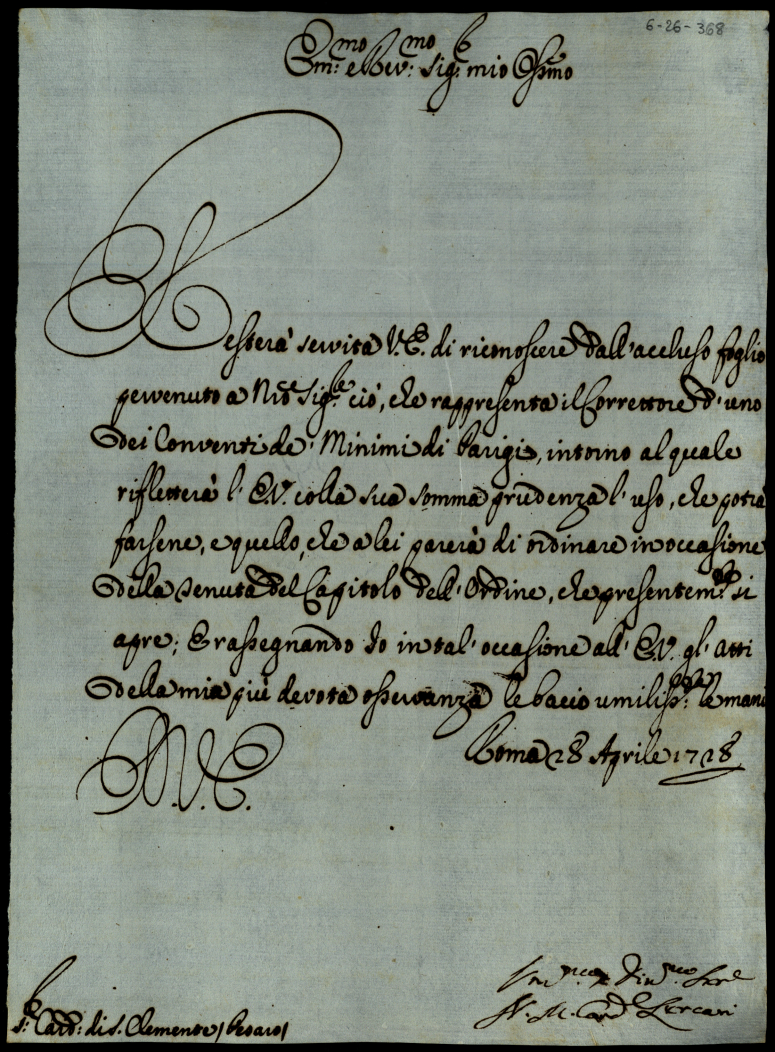 6-26-368
Em:mo e Rev:mo Sig:r mio Oss:mo
Resterà servita V.E. di riconoscere dall'accluso foglio
pervenuto a N.ro Sig.re ciò, che rappresenta il Correttore d'uno
dei Conventi de' Minimi di Parigi, intorno al quale
rifletterà l'E.V. colla sua somma prudenza l'uso, che potrà
farsene, e quello, che a lei parerà di ordinare in occasione
della tenuta del Capitolo dell'Ordine, che presentem.te si
apre; E rassegnando io in tal'occasione all'E.V. gl'atti
della mia più devota osservanza le bacio umiliss.te le mani
Roma 28 Aprile 1728
V.E.
N. M. Card. Lercari
S.r Card: di S. Clemente / Pesaro /